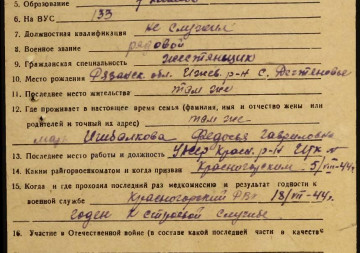 5. Образование 7 классов
6. На ВУС 133
7. Должностная квалификация не служил
8. Военное звание рядовой
9. Гражданская специальность жестянщик
10. Место рождения Рязанск. обл. Ижев. р-н с. Дегтяное
11. Последнее место жительства там же
12. Где проживает в настоящее время семья (фамилия, имя и отчество жены или
родителей и точный их адрес) там же
мать Федосья Гавриловна
13. Последнее место работы и должность
14. Каким райгорвоенкоматом и когда призван Красногорским 5/III-44 г.
15. Когда и где проходил последний раз медкомиссию и результат годности к
военной службе Красногорский РВК 18/III-44 г.
годен к строевой службе
16. Участие в Отечественной войне (в составе какой последней части и качеств